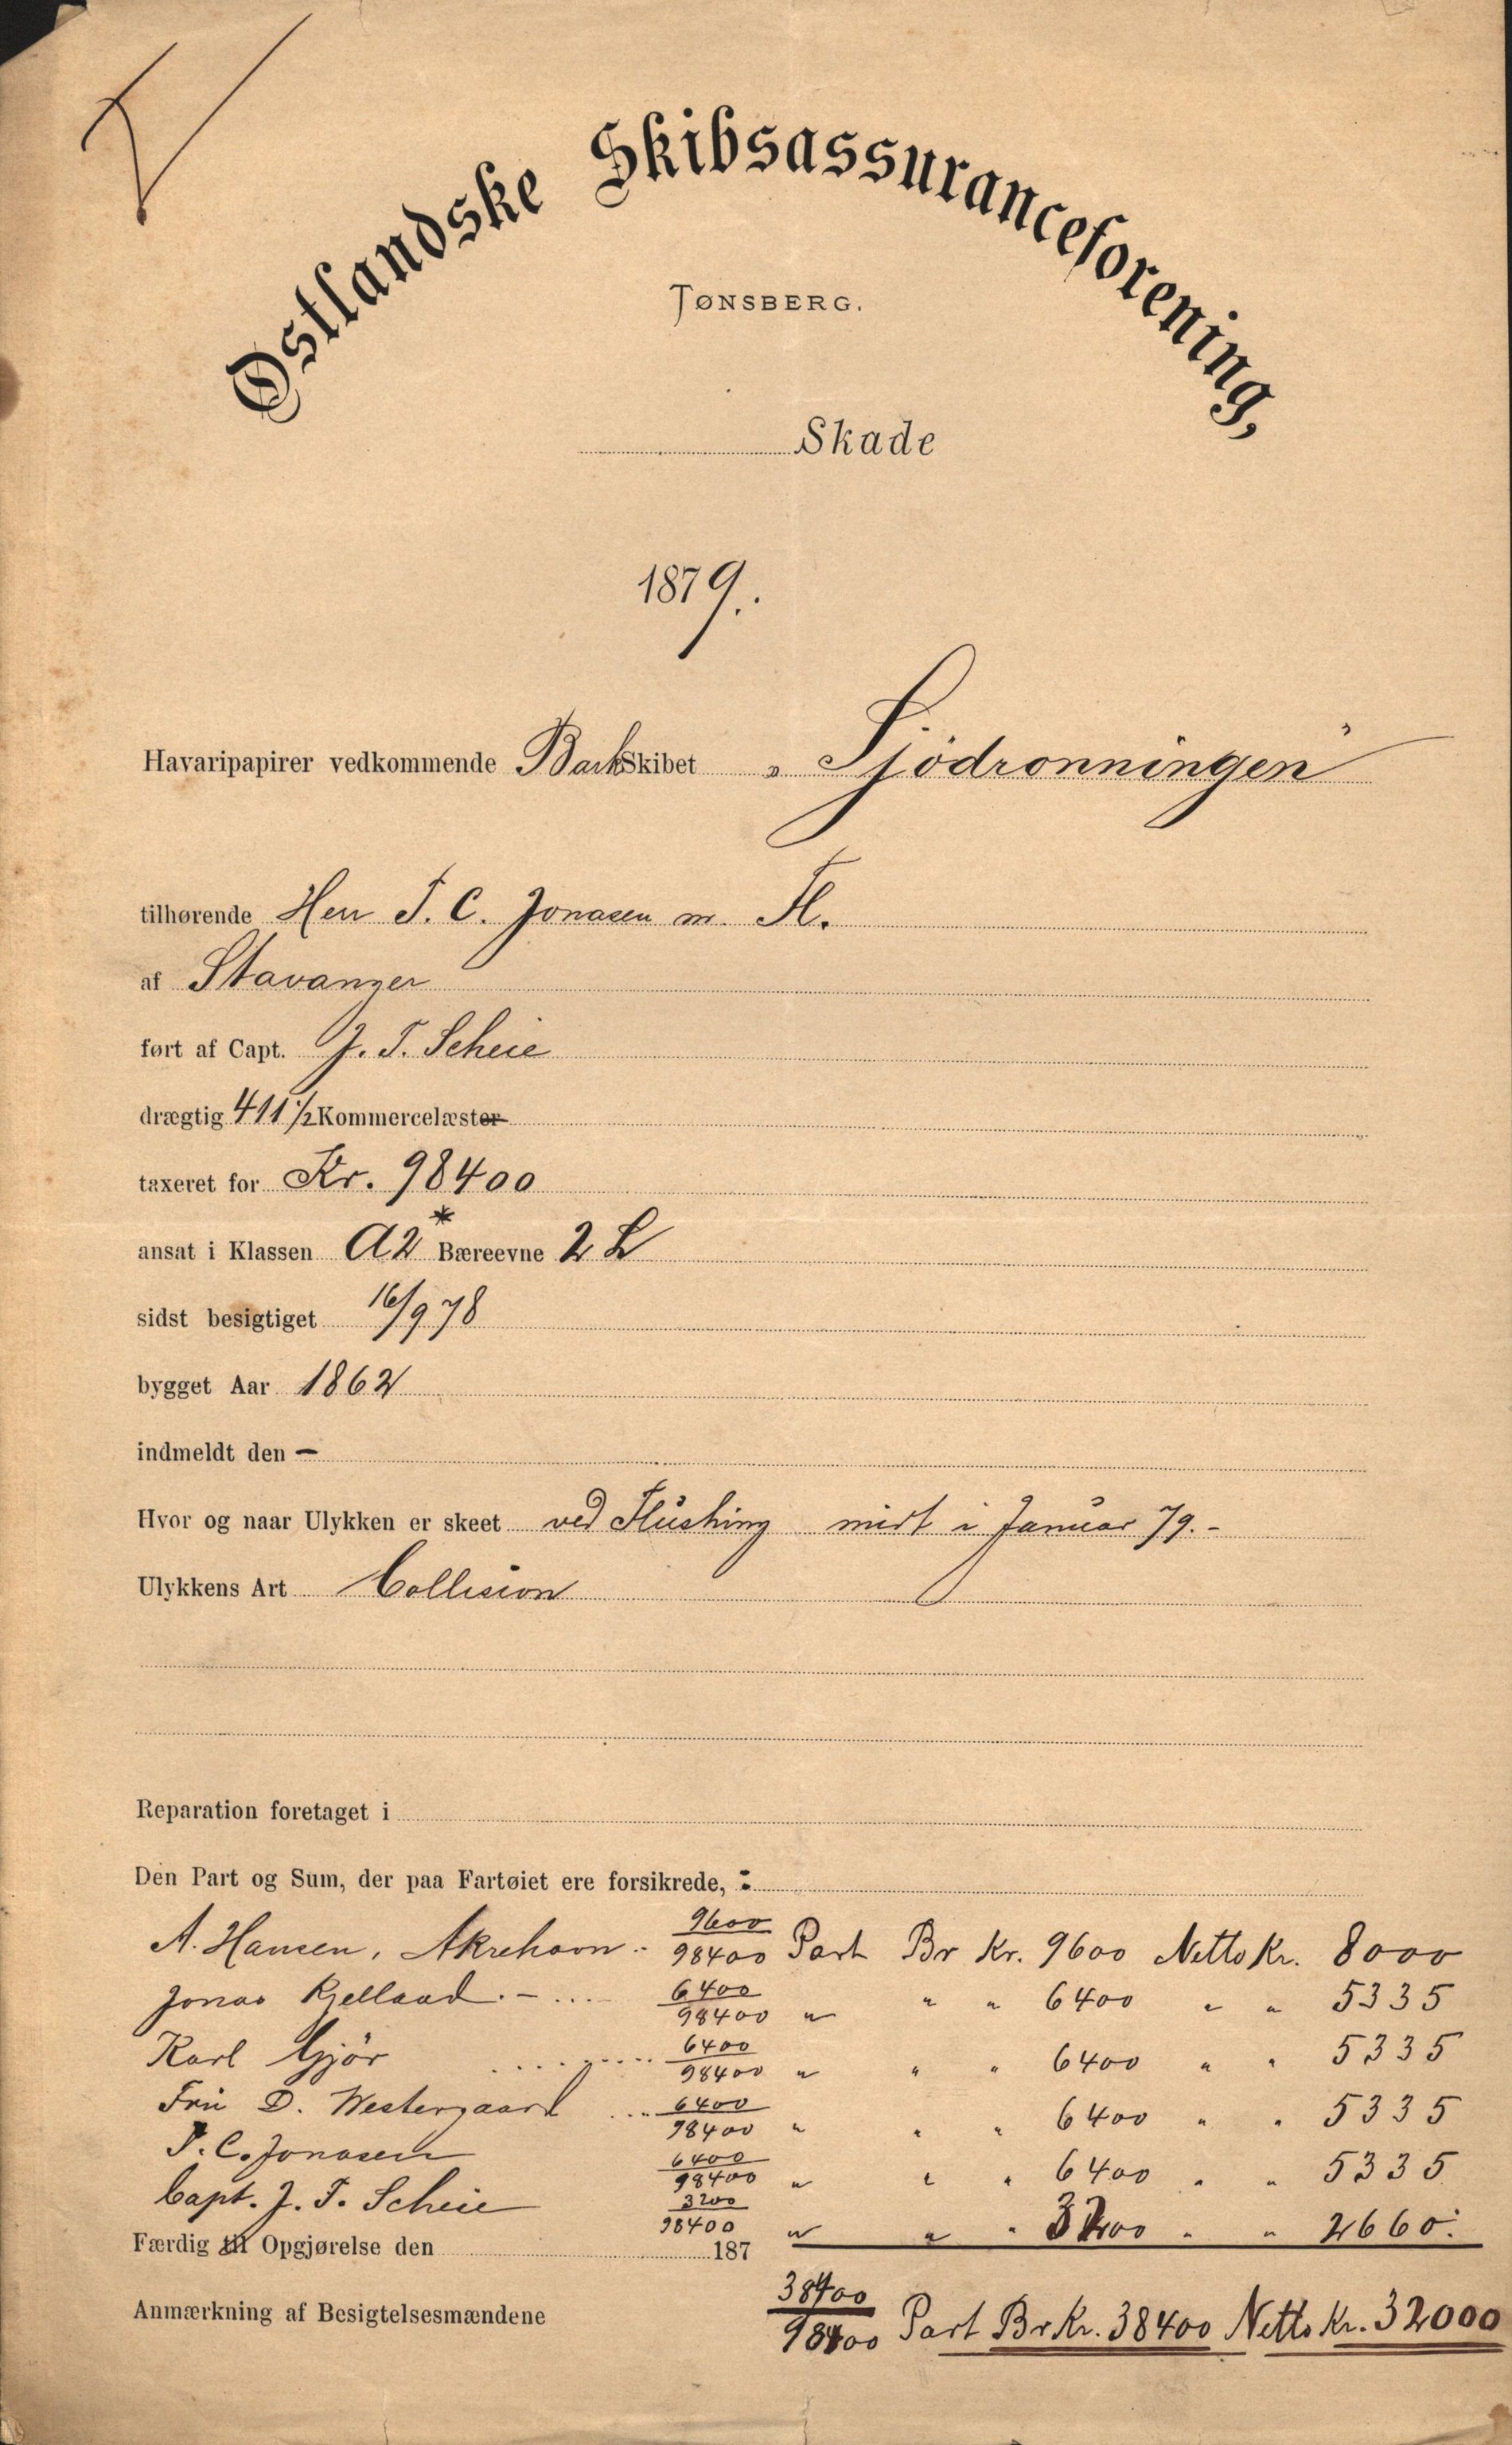 Østlandske Skibsassuranceforening,
TØNSBERG.
Skade
1879.
Havaripapirer vedkommende Bark Skibet „Sjödronningen"
tilhørende Herr T. C. Jonasen m. Fl.
af Stavanger
ført af Capt. J. T. Scheie
drægtig 411 1/2 Kommercelæster
taxeret for Kr. 98400
ansat i Klassen A2* Bæreevne 2 L
sidst besigtiget 16/9 78
bygget Aar 1862
indmeldt den —
Hvor og naar Ulykken er skeet ved Flushing midt i Januar 79.-
Ulykkens Art Collision
Reparation foretaget i
Den Part og Sum, der paa Fartøiet ere forsikrede, :
A. Hansen, Akrehavn. - 9600/98400 Part Br Kr. 9600 Netto Kr. 8000
Jonas Kjelland. - ... 6400/98400 " " " 6400 " " 5335
Karl Gjör ......... 6400/98400 " " " 6400 " " 5335
Fru D. Westergaard ... 6400/98400 " " " 6400 " " 5335
T. C. Jonasen 6400/98400 " " " 6400 " " 5335
Capt. J. T. Scheie 3200/98400 " " " 3200 " " 2660.
Færdig til Opgjørelse den 187
38400/98400 Part Br Kr. 38400 Netto Kr. 32000
Anmærkning af Besigtelsesmændene